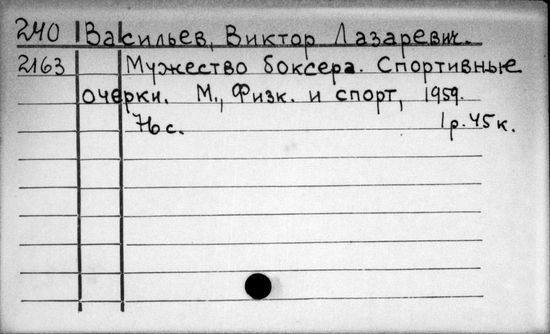 240 Васильев, Виктор Лазаревич.
2163 Мужество боксера. Спортивные
очерки. М., Физк. и спорт, 1959.
76 с. 1 р. 45 к.